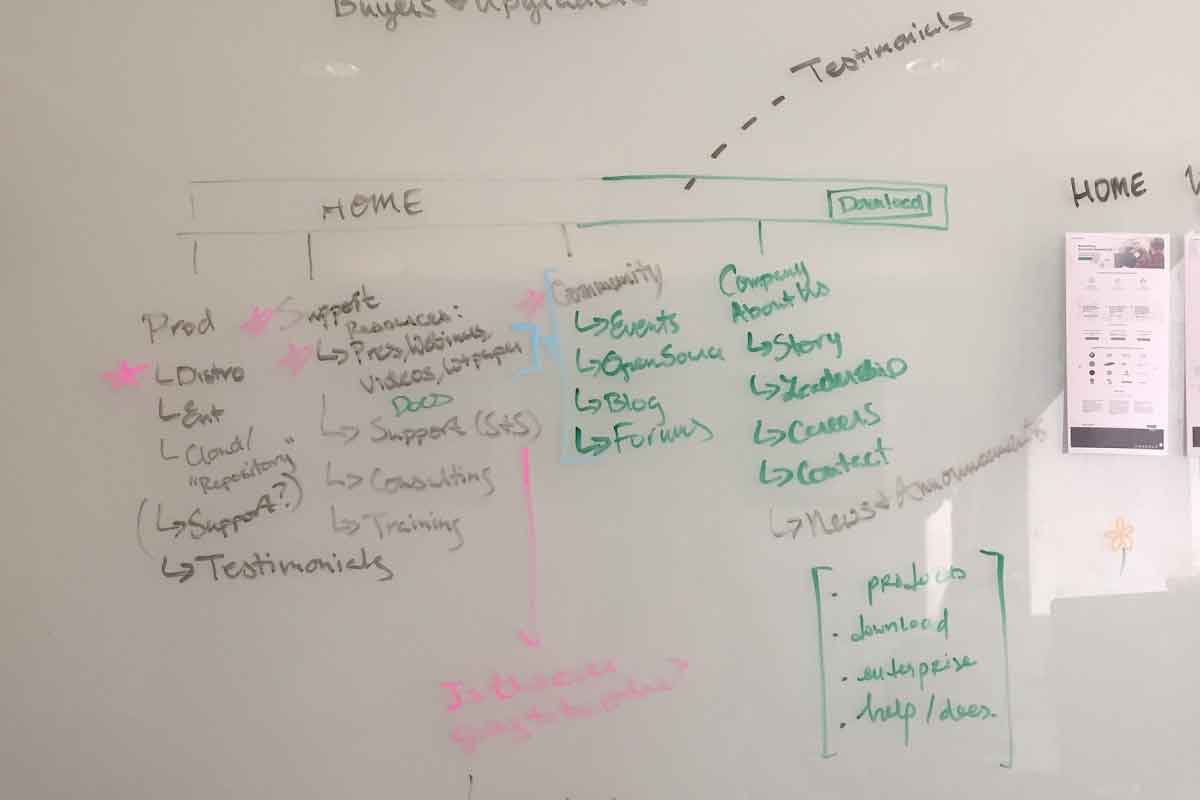 Buyers
Testimonials
HOME
Download
HOME
Prod
↳Distro
↳Ent
↳Cloud/
"Repository"
(↳Support?)
↳Testimonials
Support
Resources:
↳Pres, Webinars,
Videos,
Docs
↳Support (S+S)
↳Consulting
↳Training
Community
↳Events
↳OpenSource
↳Blog
↳Forums
Company
About Us
↳Story
↳Leadership
↳Careers
↳Contact
↳News + Announcements
· products
· download
· enterprise
· help/docs.
going to be